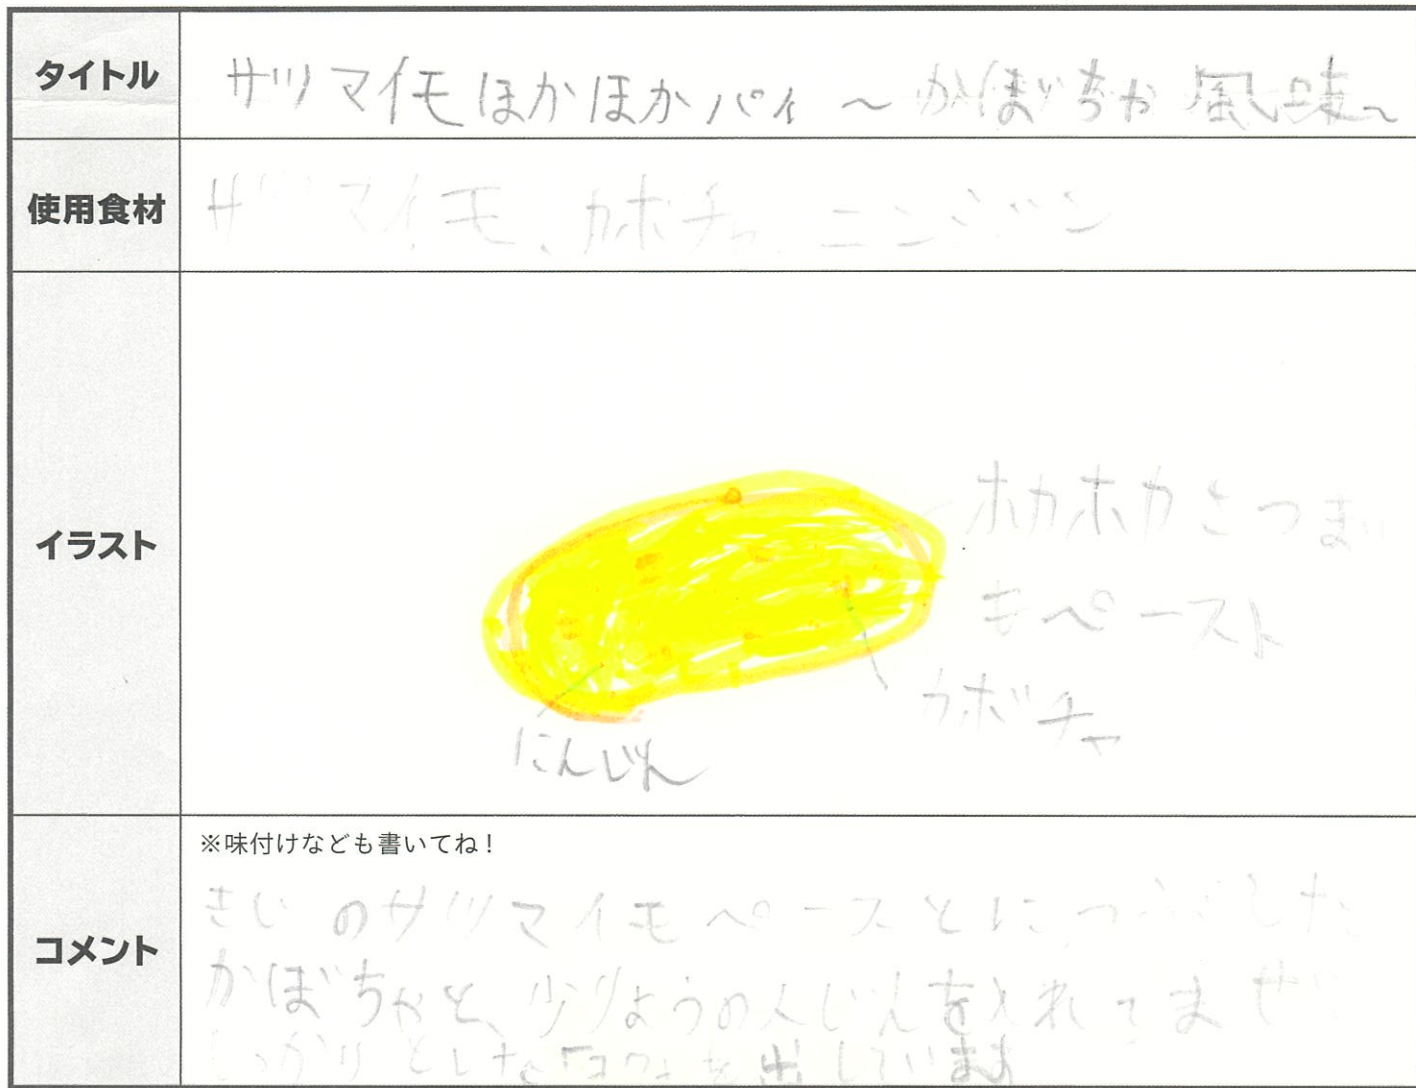 タイトル
サツマイモほかほかパイ ～かぼちゃ風味～
使用食材
サツマイモ、カボチャ、ニンジン
イラスト
ホカホカさつまい
もペースト
カボチャ
にんじん
コメント
※味付けなども書いてね！
きじのサツマイモペーストに、つぶした
かぼちゃと、少りょうの人じんを入れてませ
しっかりとした「コク」を出しています